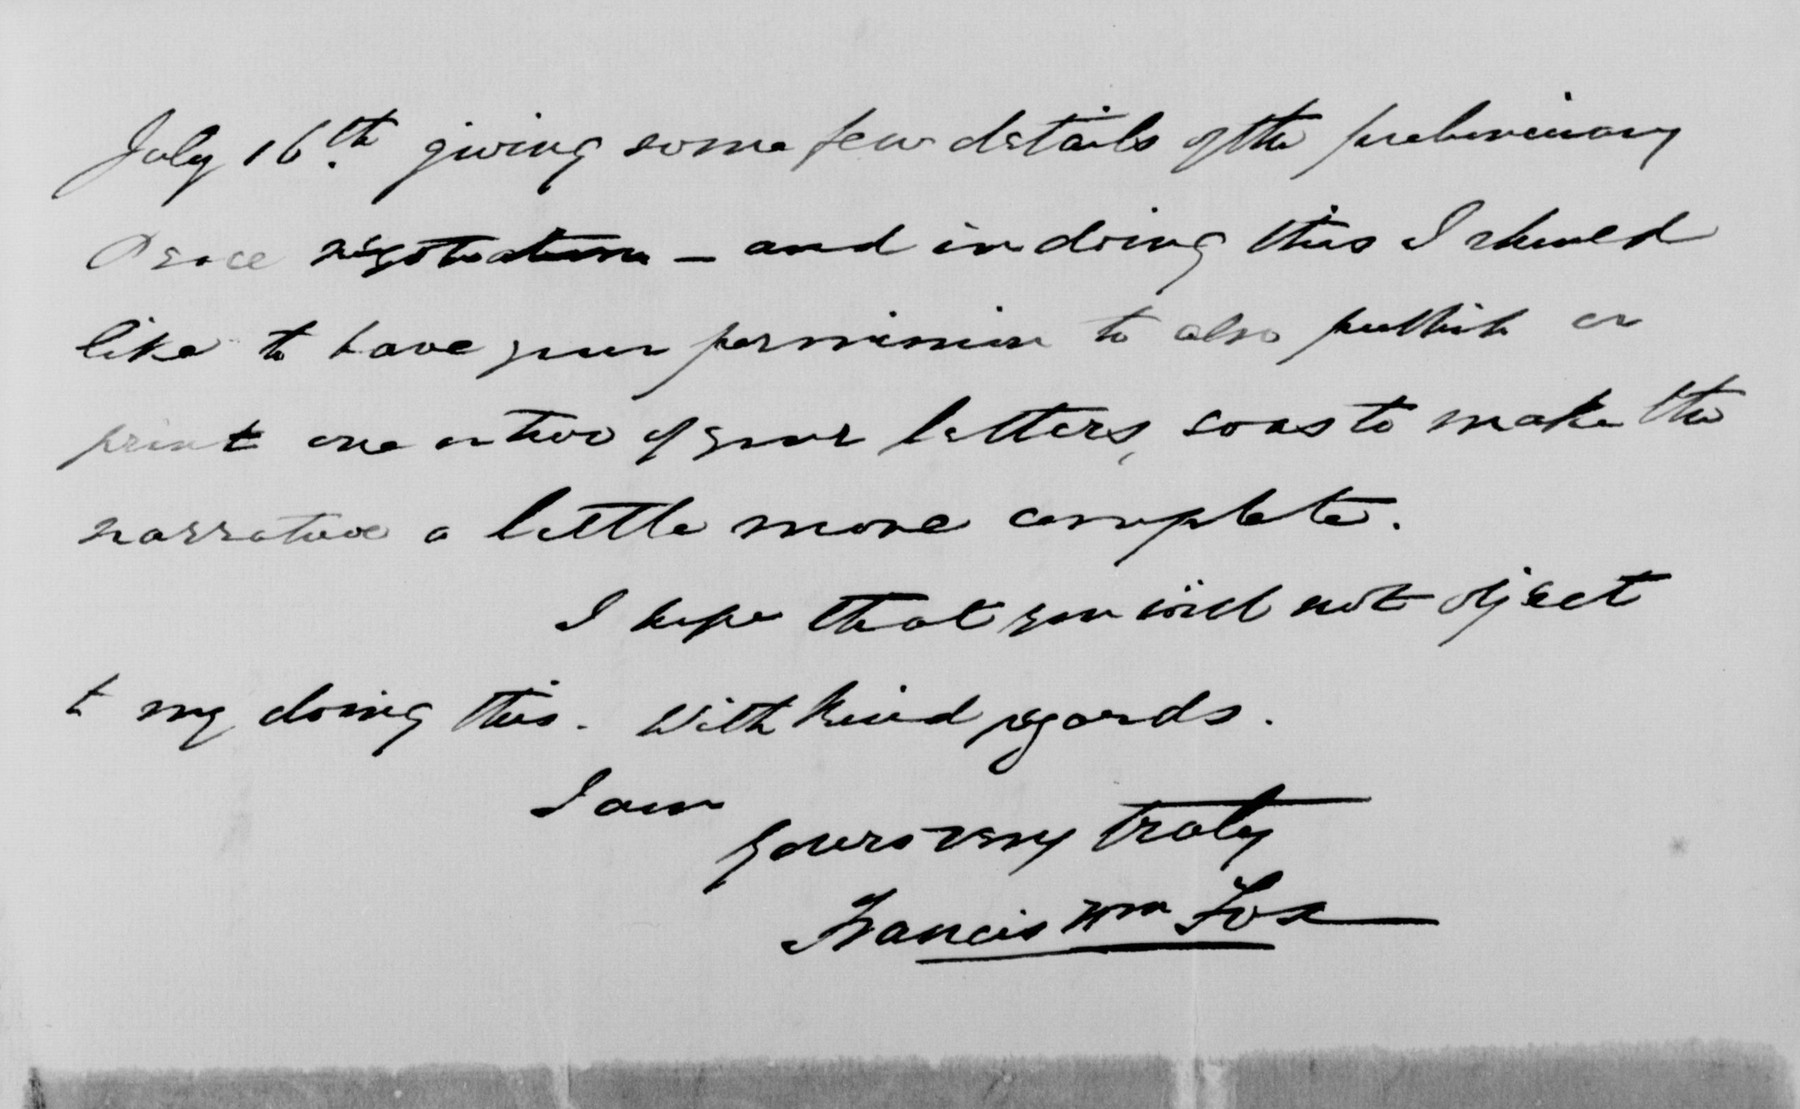 July 16th. giving some few details of the preliminary
Peace negotiations — and in doing this I should
like to have your permission to also publish or
print one or two of your letters, so as to make the
narrative a little more complete.
I hope that you will not object
to my doing this. With kind regards.
I am
yours very truly
Francis Wm Fox